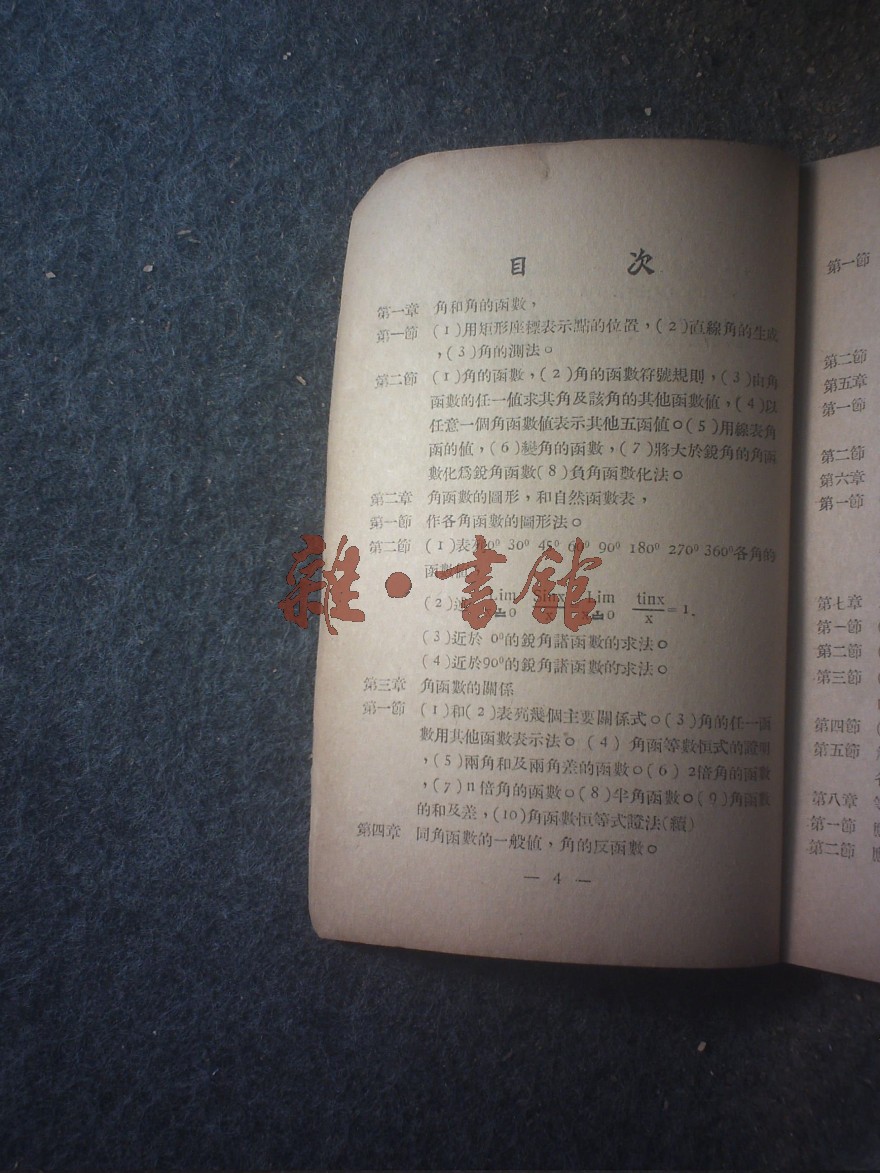 目 次
第一章 角和角的函數，
第一節 (1)用矩形座標表示點的位置，(2)直線角的生成
，(3)角的測法。
第二節 (1)角的函數，(2)角的函數符號規則，(3)由角
函數的任一值求其角及該角的其他函數值，(4)以
任意一個角函數值表示其他五函值。(5)用線表角
函的值，(6)變角的函數，(7)將大於銳角的角函
數化爲銳角函數(8)負角函數化法。
第二章 角函數的圖形，和自然函數表，
第一節 作各角函數的圖形法。
第二節 (1)表列0⁰ 30⁰ 45⁰ 60⁰ 90⁰ 180⁰ 270⁰ 360⁰各角的
函數值
(2) Lim Sinx Lim tinx/x=1.
(3)近於 0⁰的銳角諸函數的求法。
(4)近於90⁰的銳角諸函數的求法。
第三章 角函數的關係
第一節 (1)和(2)表列幾個主要關係式。(3)角的任一函
數用其他函數表示法。(4) 角函等數恒式的證明
，(5)兩角和及兩角差的函數。(6) 2倍角的函數
，(7)n倍角的函數。(8)半角函數。(9)角函數
的和及差，(10)角函數恒等式證法(續)
第四章 同角函數的一般值，角的反函數。
— 4 —
第一節
第二節
第五章
第一節
第二節
第六章
第一節
第七章
第一節
第二節
第三節
第四節
第五節
第八章
第一節
第二節
雜·書館